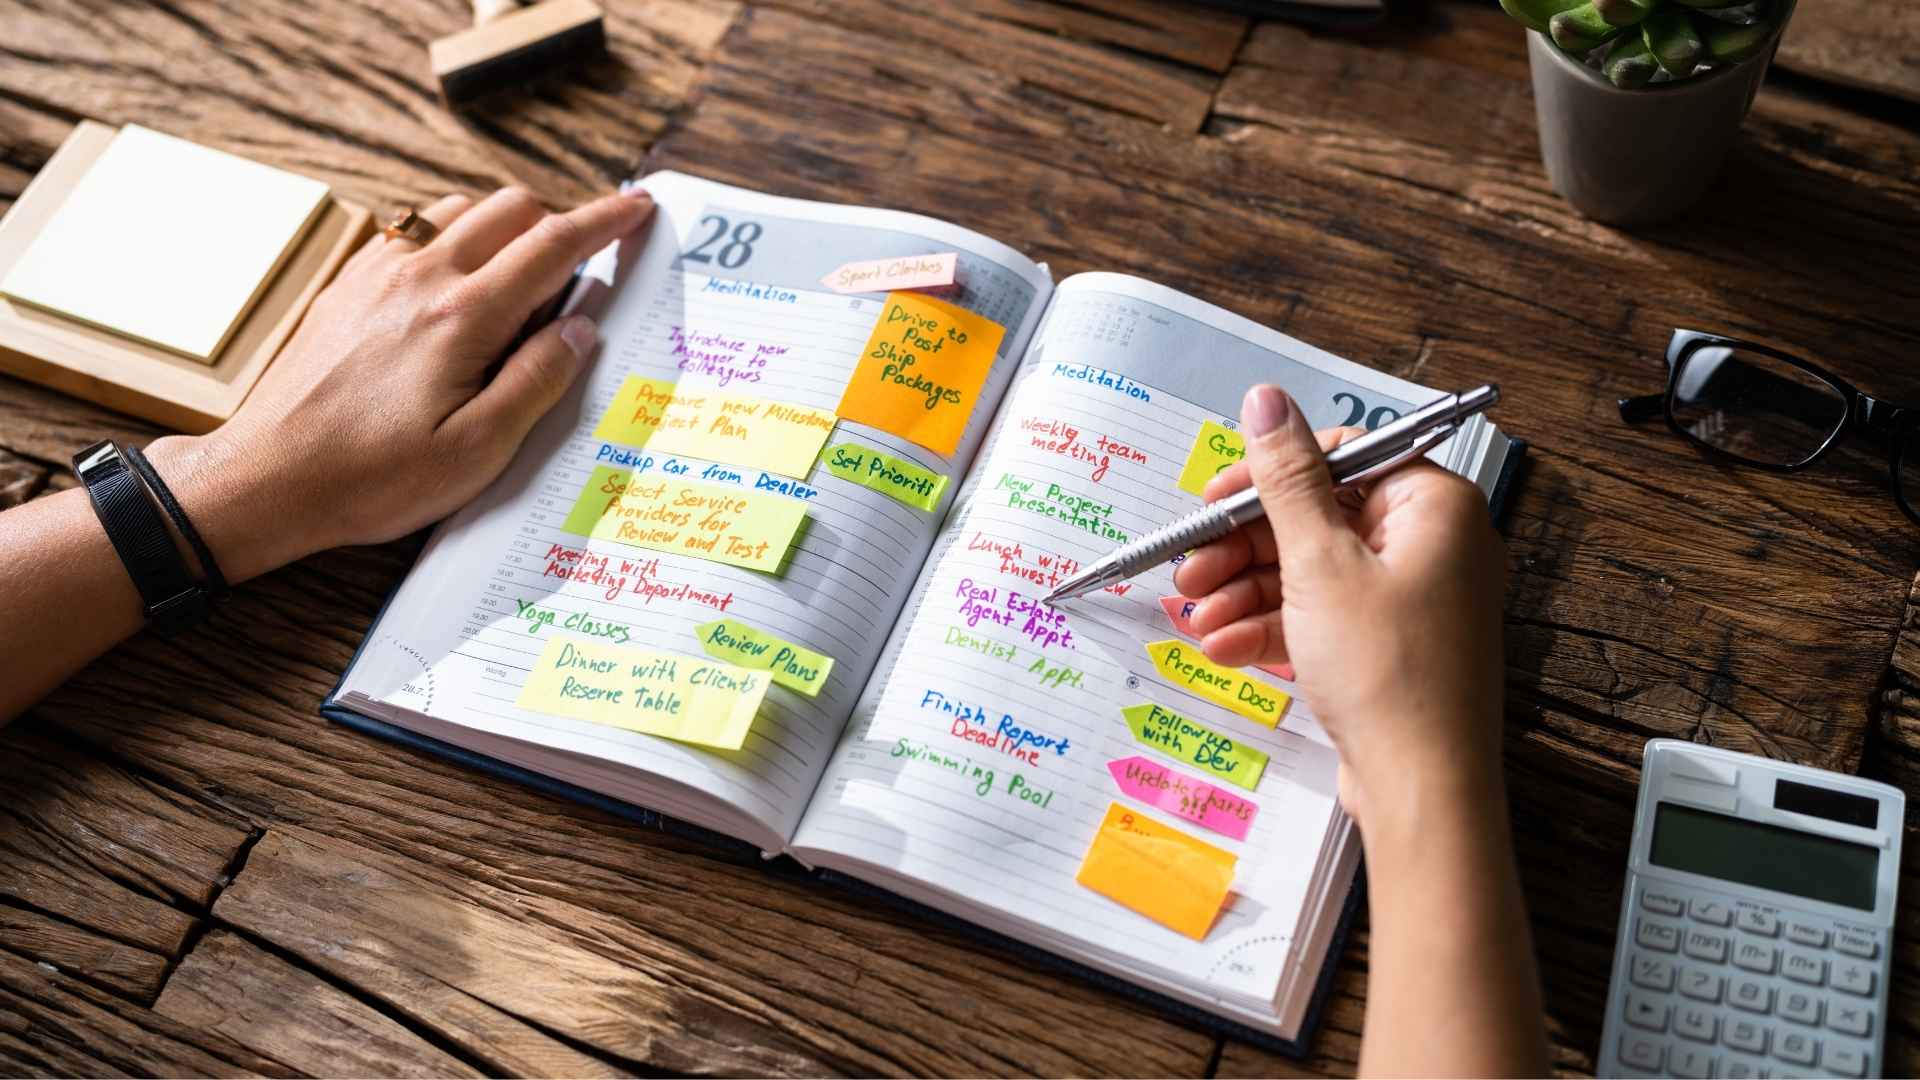 28
Sport Clothes
Meditation
Drive to
Post
Ship
Packages
Introduce new
Manager to
Colleagues
Prepare new Milestone
Project Plan
Set Prioriti
Pickup Car from Dealer
Select Service
Providers for
Review and Test
Meeting with
Marketing Department
Yoga Classes
Review Plans
Dinner with Clients
Reserve Table
28.7.
29
August
Meditation
Weekly team
meeting
Got
New Project
Presentation
Lunch with
Real Estate
Agent Appt.
Dentist Appt.
Prepare Docs
Finish Report
Deadline
Follow up
with Dev
Swimming Pool
Update Charts
!!!
MC
MR
M-
M+
÷
7
8
9
×
4
5
6
-